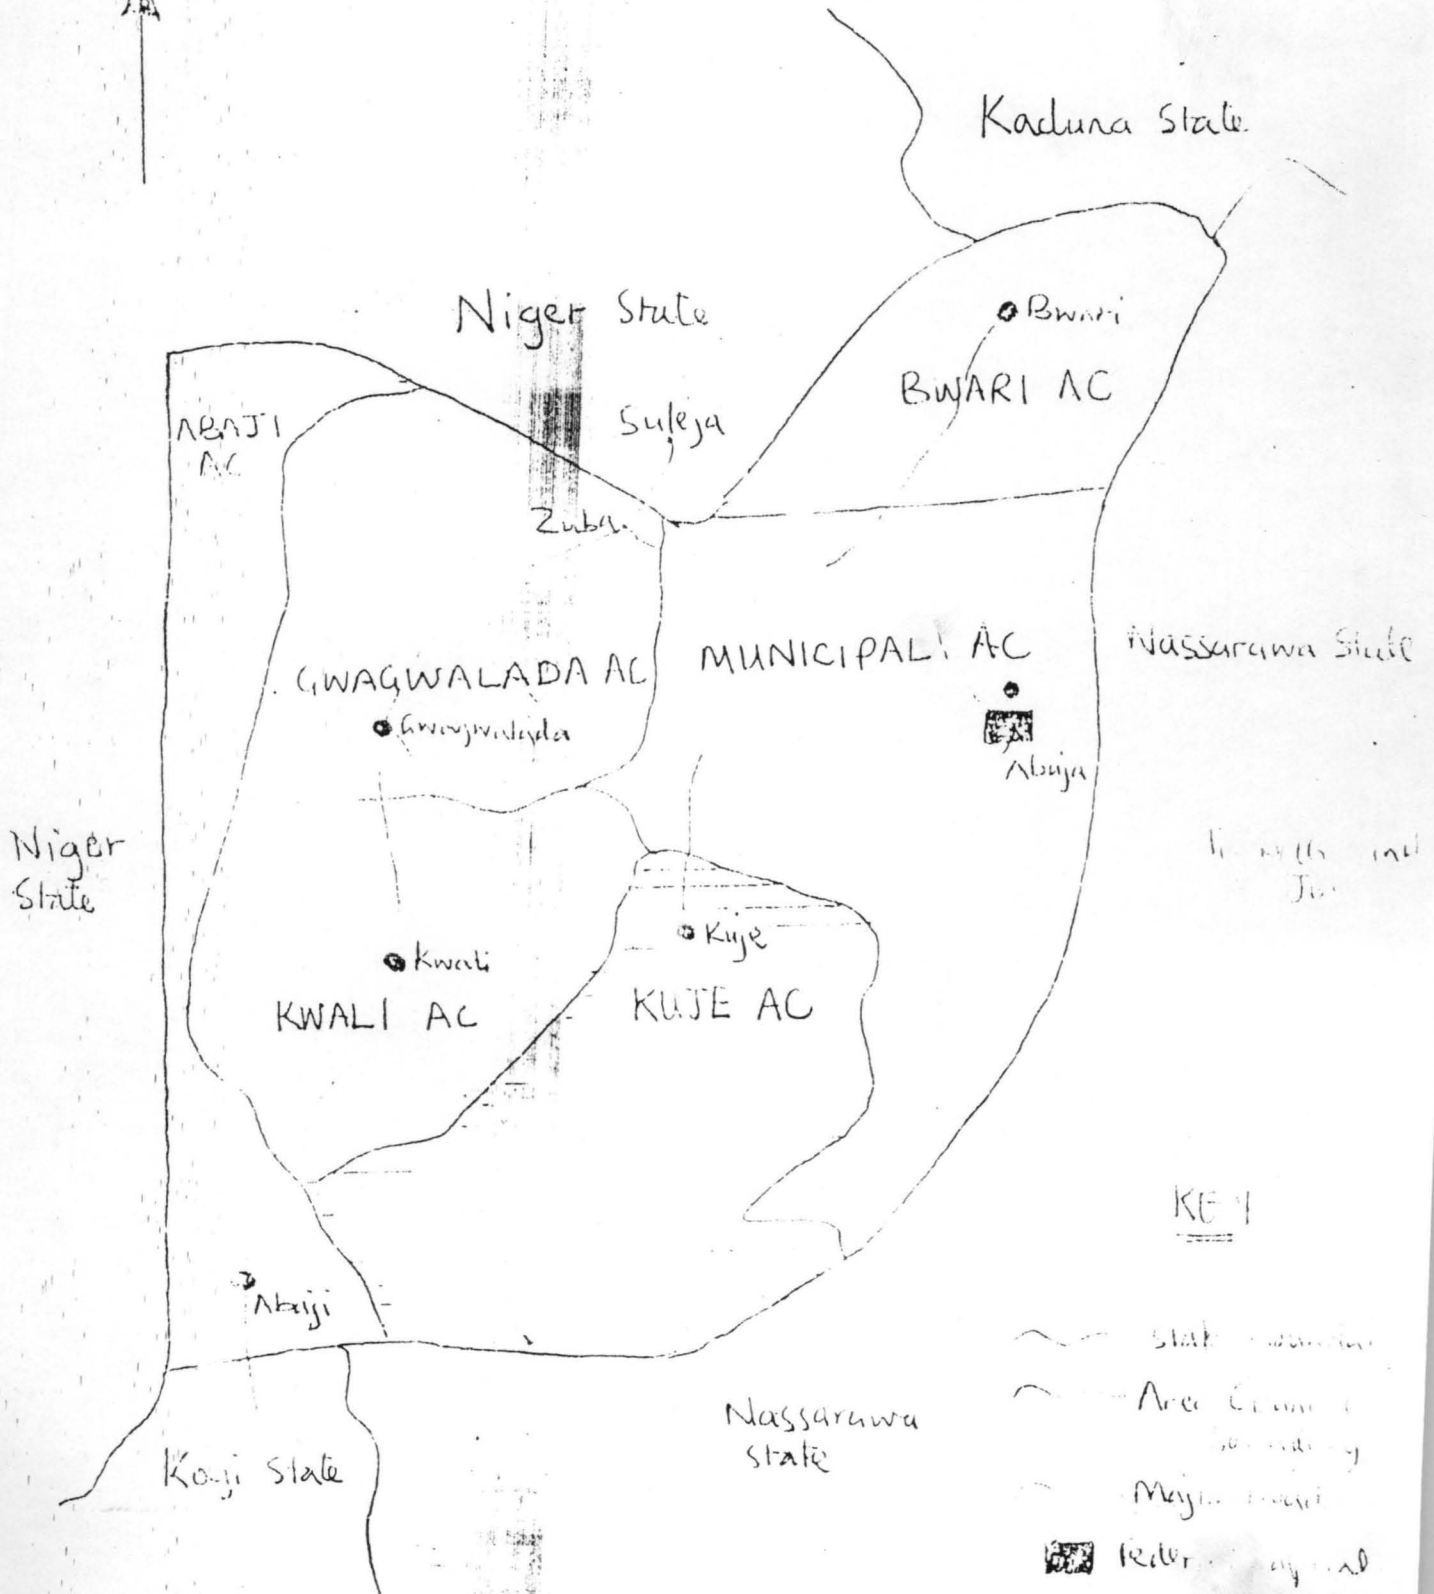 Kaduna State
Niger State
Bwari
BWARI AC
ABAJI
AC
Suleja
Zuba
GWAGWALADA AC
MUNICIPAL AC
Nassarawa State
Gwagwalada
Abuja
Niger
State
Kuje
Kwali
KWALI AC
KUJE AC
KEY
Abaji
State
Area
Nassarawa
State
Kogi State